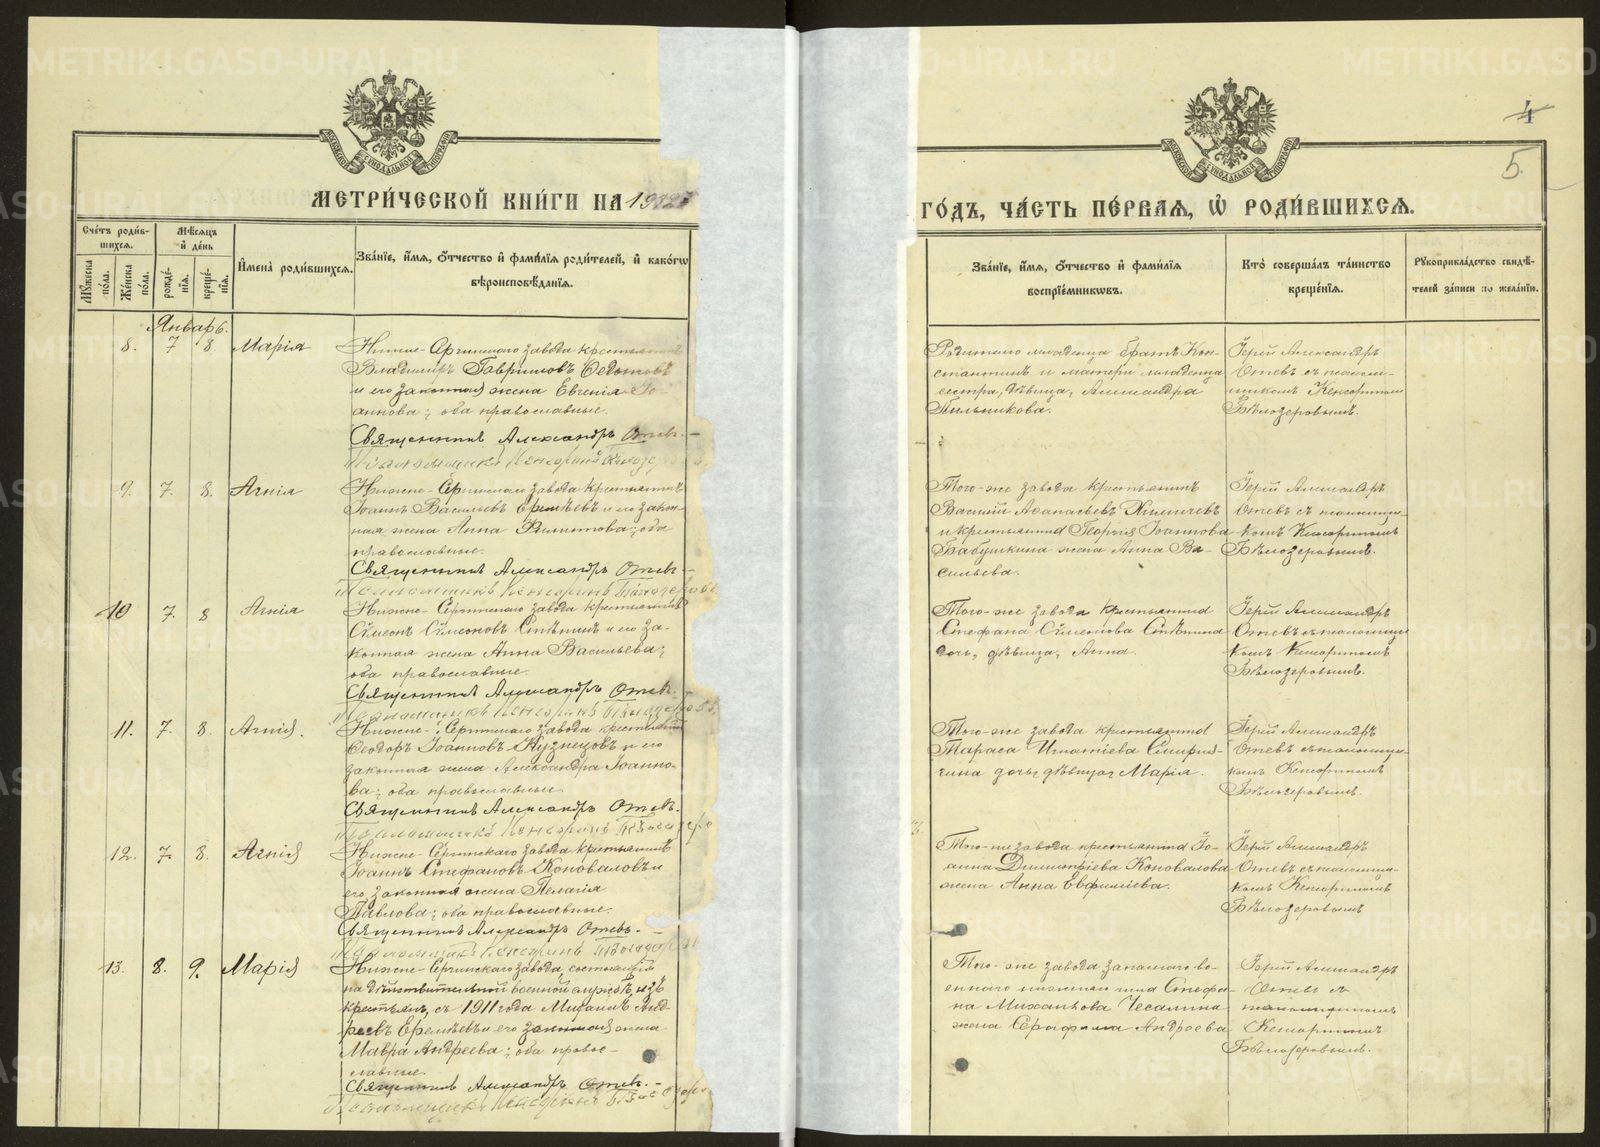 METRIKI.GASO-URAL.RU
4
5
МЕТРИ́ЧЕСКОЙ КНИ́ГИ НА 1912
ГО́ДЪ, ЧА́СТЬ ПЕ́РВАЯ, Ѡ РОДИ́ВШИХСѦ.
Сче́тъ роди́в-
шихсѧ.
Мꙋжеска по́ла.
Же́нска по́ла.
Мѣ́сѧцъ и҆ де́нь
рожде́-нїѧ.
креще́-нїѧ.
И҆мена̀ роди́вшихсѧ.
Зва́нїе, и҆́мѧ, ѻ҆́тчество и҆ фами́лїѧ роди́телей, и҆ како́гѡ
вѣроисповѣ́данїѧ.
Зва́нїе, и҆́мѧ, ѻ҆́тчество и҆ фами́лїѧ
воспрїе́мникѡвъ.
Кто̀ соверша́лъ та́инство
креще́нїѧ.
Рꙋкоприкла́дство свидѣ́-
телей за́писи по жела́нїю.
Январь.
8. 7 8. Марія
Нижне-Сергинскаго завода крестьянинъ
Владиміръ Гавриловъ Ѳедотовъ
и его законная жена Евгенія Іо-
аннова; оба православные.
Священникъ Александръ Отевъ.
Родителя младенца братъ Кон-
стантинъ и матери младенца
сестра, дѣвица, Александра
Пильникова.
Іерей Александръ
Отевъ съ псалом-
щикомъ Кенсориномъ
Бѣлозеровымъ.
9. 7. 8. Агнія
Нижне-Сергинскаго завода крестьянинъ
Іоаннъ Васильевъ Еремѣевъ и его закон-
ная жена Анна Филиппова; оба
православные.
Священникъ Александръ Отевъ
Псаломщикъ Кенсоринъ Бѣлозеровъ
Того-же завода крестьянинъ
Василій Аѳанасьевъ
и крестьянина Георгія Іоаннова
Бабушкина жена Анна Ва-
сильева.
Іерей Александръ
Отевъ съ псаломщи-
комъ Кенсориномъ
Бѣлозеровымъ.
10 7. 8 Агнія
Нижне-Сергинскаго завода крестьянинъ
Сѵмеонъ Сѵмеоновъ и его за-
конная жена Анна Васильева;
оба православные.
Священникъ Александръ Отевъ.
Псаломщикъ Кенсоринъ Бѣлозеровъ
Того-же завода крестьянина
Стефана Сѵмеонова
дочь, дѣвица, Анна.
Іерей Александръ
Отевъ съ псаломщи-
комъ Кенсориномъ
Бѣлозеровымъ.
11. 7. 8. Агнія.
Нижне-Сергинскаго завода крестьянинъ
Ѳеодоръ Іоанновъ Кузнецовъ и его
законная жена Александра Іоанно-
ва; оба православные
Священникъ Александръ Отевъ.
Псаломщикъ Кенсоринъ Бѣлозеро
Того-же завода крестьянина
Тараса Игнатіева
дочь, дѣвица, Марія.
Іерей Александръ
Отевъ съ псаломщи-
комъ Кенсориномъ
Бѣлозеровымъ.
12. 7. 8. Агнія
Нижне-Сергинскаго завода крестьянинъ
Іоаннъ Стефановъ Коноваловъ и
его законная жена Пелагія
Павлова; оба православные.
Священникъ Александръ Отевъ.
Псаломщикъ Кенсоринъ Бѣлозеров
Того-же завода крестьянина Іо-
анна Димитріева Коновалова
жена Анна Евфиміева.
Іерей Александръ
Отевъ съ псаломщи-
комъ Кенсориномъ
Бѣлозеровымъ
13. 8. 9. Марія
Нижне-Сергинскаго завода, состоящій
на дѣйствительной военной службѣ изъ
крестьянъ, съ 1911 года Михаилъ Анд-
реевъ Еремѣевъ и его законная жена
Мавра Андреева; оба правос-
лавные.
Священникъ Александръ Отевъ.
Псаломщикъ Кенсоринъ Бѣлозеро
Того-же завода запаснаго во-
еннаго нижняго чина Стефа-
на Михаилова Чесалина
жена Серафима Андреева
Іерей Александръ
Отевъ съ
псаломщикомъ
Кенсориномъ
Бѣлозеровымъ.